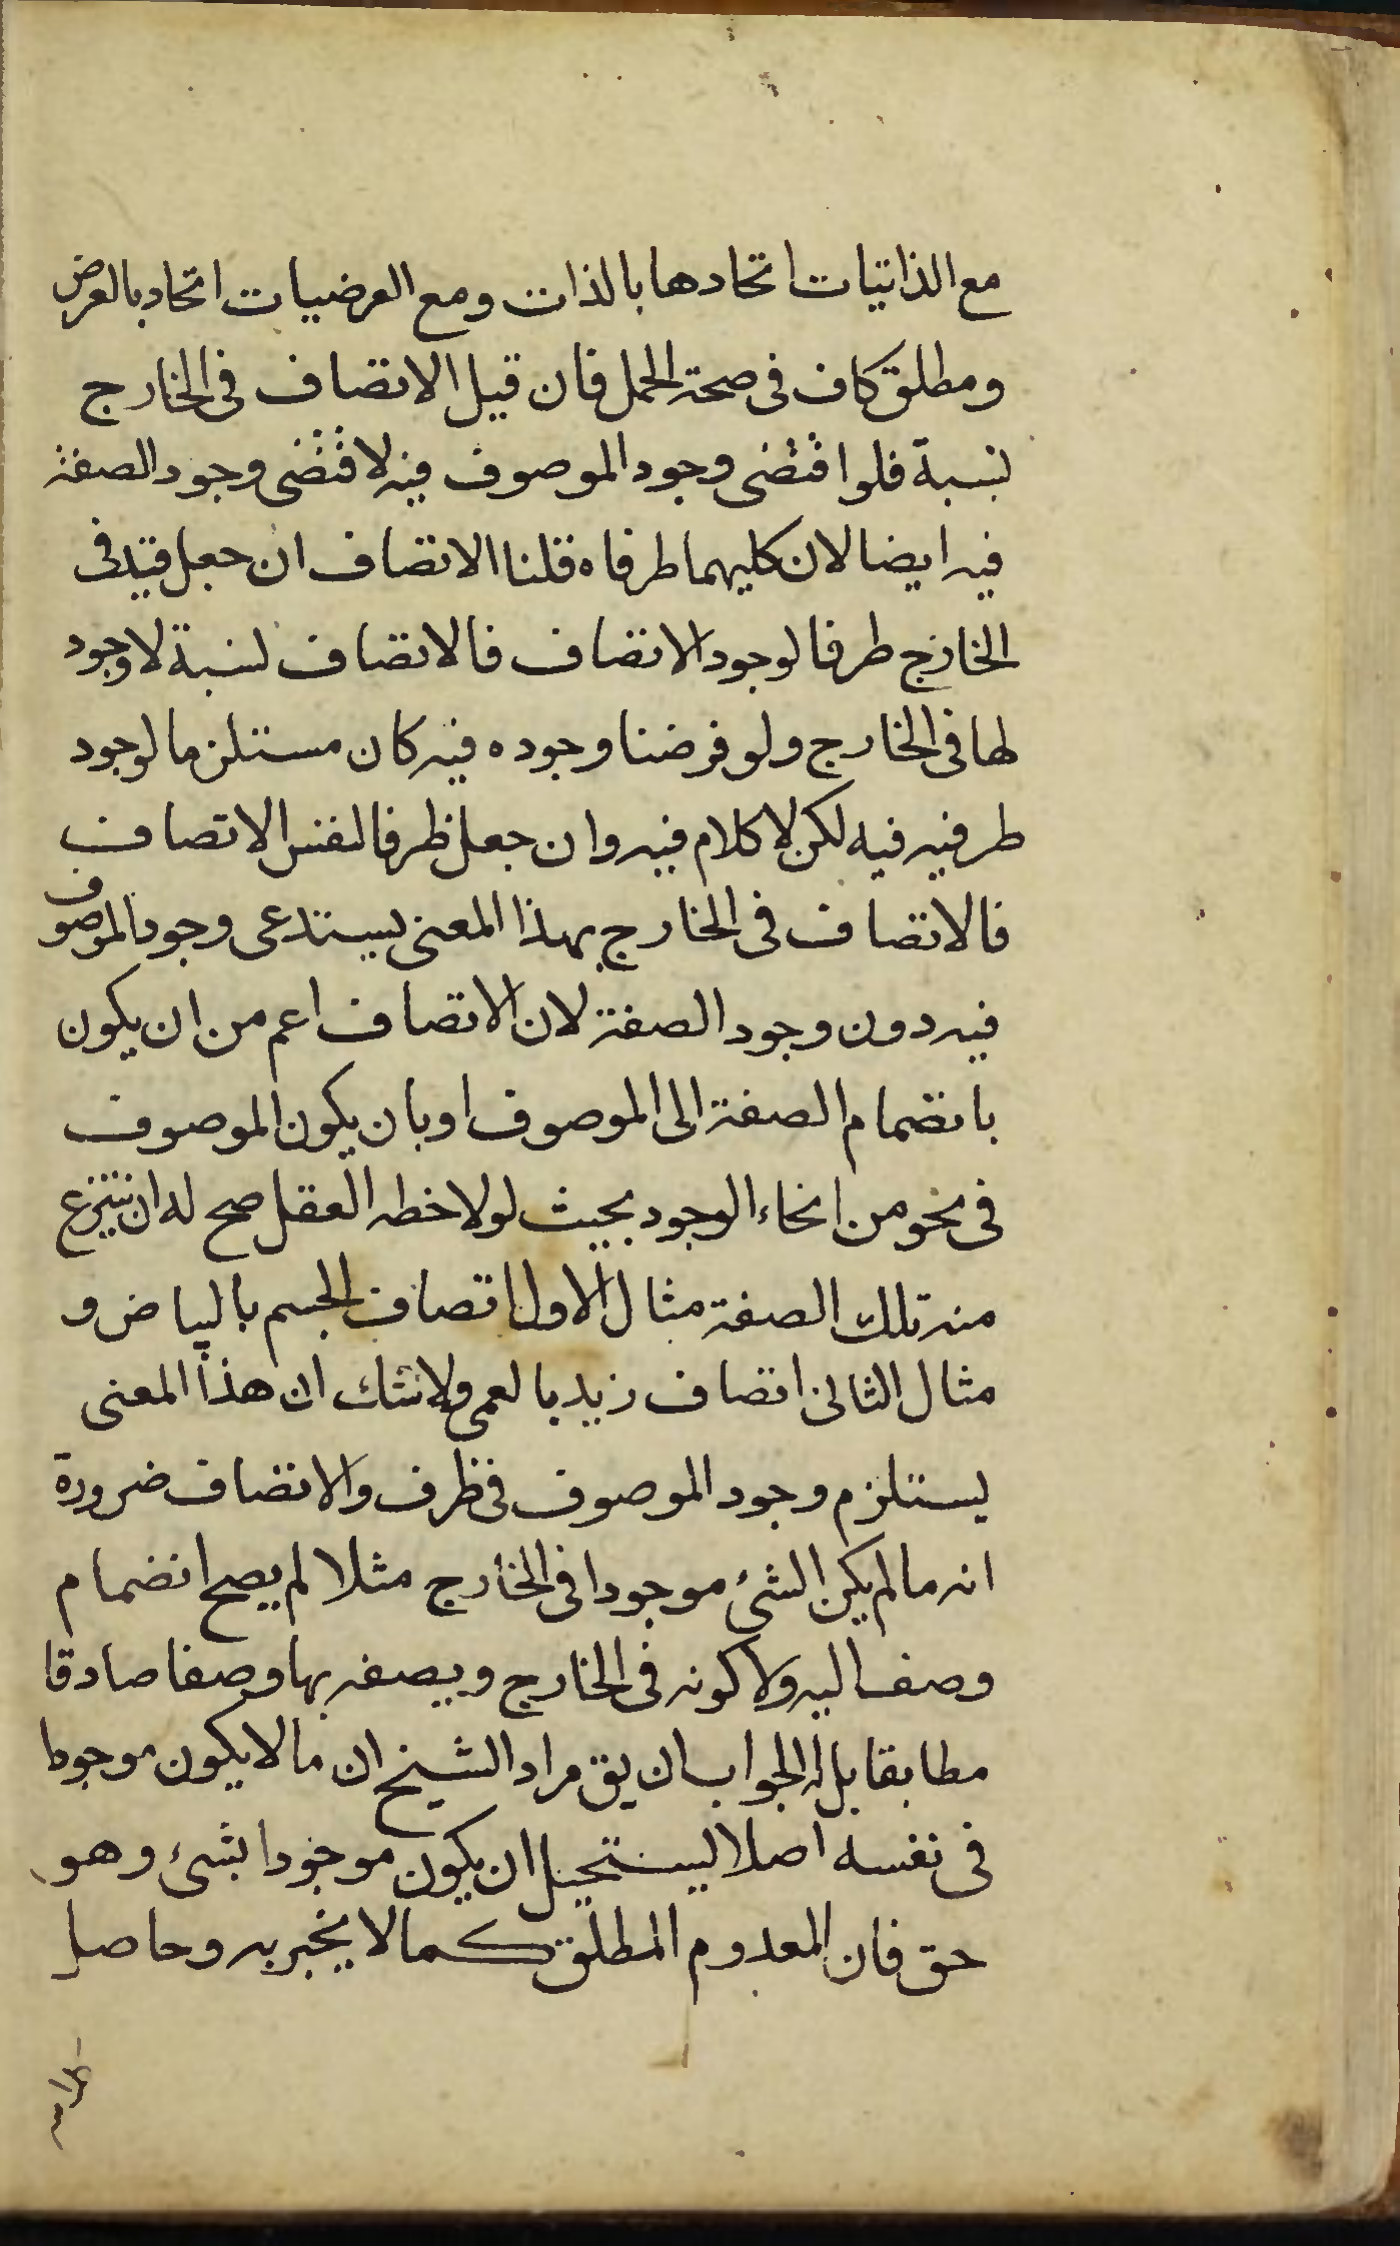 مع الذاتيات اتحادها بالذات ومع العرضيات اتحاد بالعرض
ومطلق كاف فى صحة الحمل فان قيل الاتصاف فى الخارج
نسبة فلو اقتضى وجود الموصوف فيه لاقتضى وجود الصفة
فيه ايضا لان كليهما طرفاه قلنا الاتصاف ان جعل قيد فى
الخارج ظرفا لوجود الاتصاف فالاتصاف نسبة لا وجود
لها فى الخارج ولو فرضنا وجوده فيه كان مستلزما لوجود
طرفيه فيه لكن لا كلام فيه وان جعل ظرفا لنفس الاتصاف
فالاتصاف فى الخارج بهذا المعنى يستدعى وجود الموصوف
فيه دون وجود الصفة لان الاتصاف اعم من ان يكون
بانضمام الصفة الى الموصوف او بان يكون الموصوف
فى نحو من انحاء الوجود بحيث لو لاحظه العقل صح له ان ينتزع
منه تلك الصفة مثال الاول اتصاف الجسم بالبياض و
مثال الثانى اتصاف زيد بالعمى ولا شك ان هذا المعنى
يستلزم وجود الموصوف فى ظرف والاتصاف ضرورة
انه ما لم يكن الشئ موجودا فى الخارج مثلا لم يصح انضمام
وصف اليه ولا كونه فى الخارج ويصفه بها وصفا صادقا
مطابقا بل الجواب ان يق مراد الشيخ ان ما لا يكون موجودا
فى نفسه اصلا يستحيل ان يكون موجودا بشئ وهو
حق فان المعدوم المطلق كما لا يخبر به وحاصل